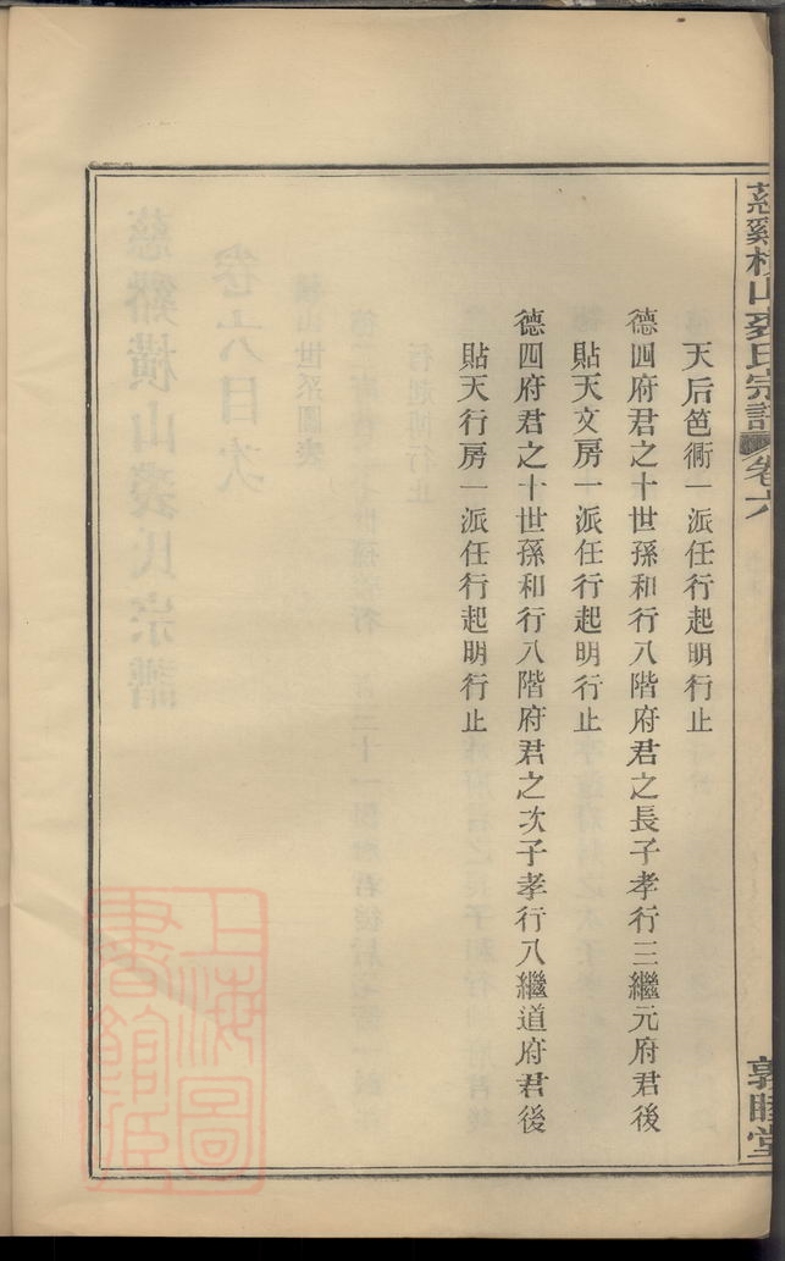 慈谿橫山裘氏宗譜 卷六
敦睦堂
天后笆衕一派任行起明行止
德四府君之十世孫和行八階府君之長子孝行三繼元府君後
貼天文房一派任行起明行止
德四府君之十世孫和行八階府君之次子孝行八繼道府君後
貼天行房一派任行起明行止
慈谿橫山裘氏宗譜
卷六目次
橫山世系圖表
上海圖
書館藏